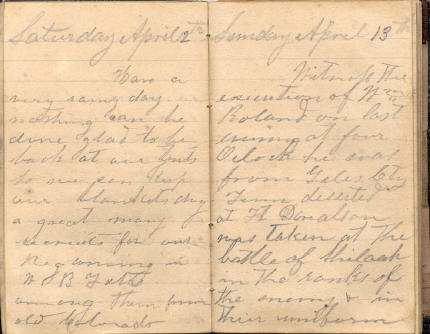 Saturday April 12th
Have a
very rainy day
nothing can be
done glad to be
back at our tents
so we can keep
our blankets dry
a great many
recruits for our
Reg coming in
among them from
old Colorado
Sunday April 13th
Witness the
execution of Wm
Boland on last
evening at four
Oclock he was
from Giles Cty
Tenn deserted
at Ft Donalson
was taken at the
battle of Shiloah
in the ranks of
the enemy & in
their uniform